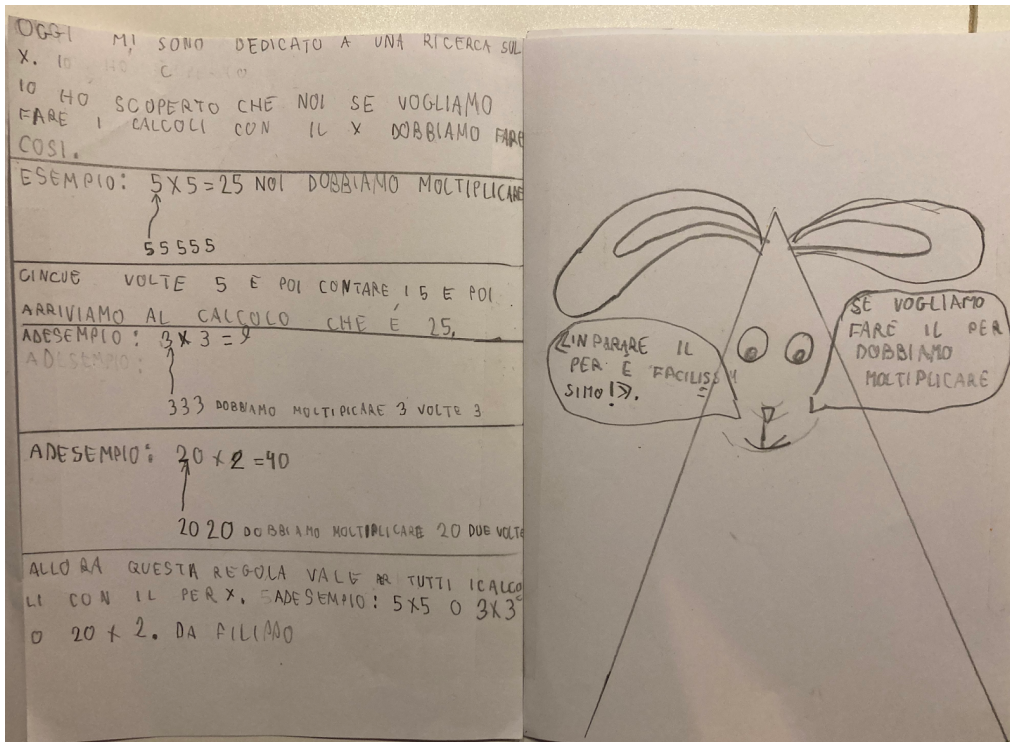 OGGI MI SONO DEDICATO A UNA RICERCA SUL
X. IO HO
IO HO SCOPERTO CHE NOI SE VOGLIAMO
FARE I CALCOLI CON IL X DOBBIAMO FARE
COSI.
ESEMPIO: 5X5=25 NOI DOBBIAMO MOLTIPLICARE
55555
CINCUE VOLTE 5 E POI CONTARE I 5 E POI
ARRIVIAMO AL CALCOLO CHE É 25.
ADESEMPIO: 3X3=9
ADESEMPIO:
333 DOBBIAMO MOLTIPICARE 3 VOLTE 3
ADESEMPIO: 20X2=40
20 20 DOBBIAMO MOLTIPLICARE 20 DUE VOLTE
ALLORA QUESTA REGOLA VALE PER TUTTI I CALCO
LI CON IL PER X. ADESEMPIO: 5X5 O 3X3
O 20X2. DA FILIPPO
«INPARARE IL
PER E FACILIS
SIMO!».
SE VOGLIAMO
FARE IL PER
DOBBIAMO
MOLTIPLICARE